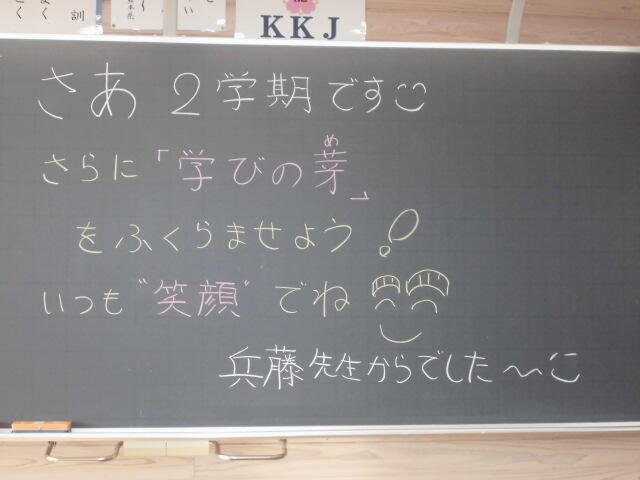 KKJ
さあ 2学期です
さらに「学びの芽」
め
をふくらませよう!
いつも"笑顔"でね
兵藤先生からでした～